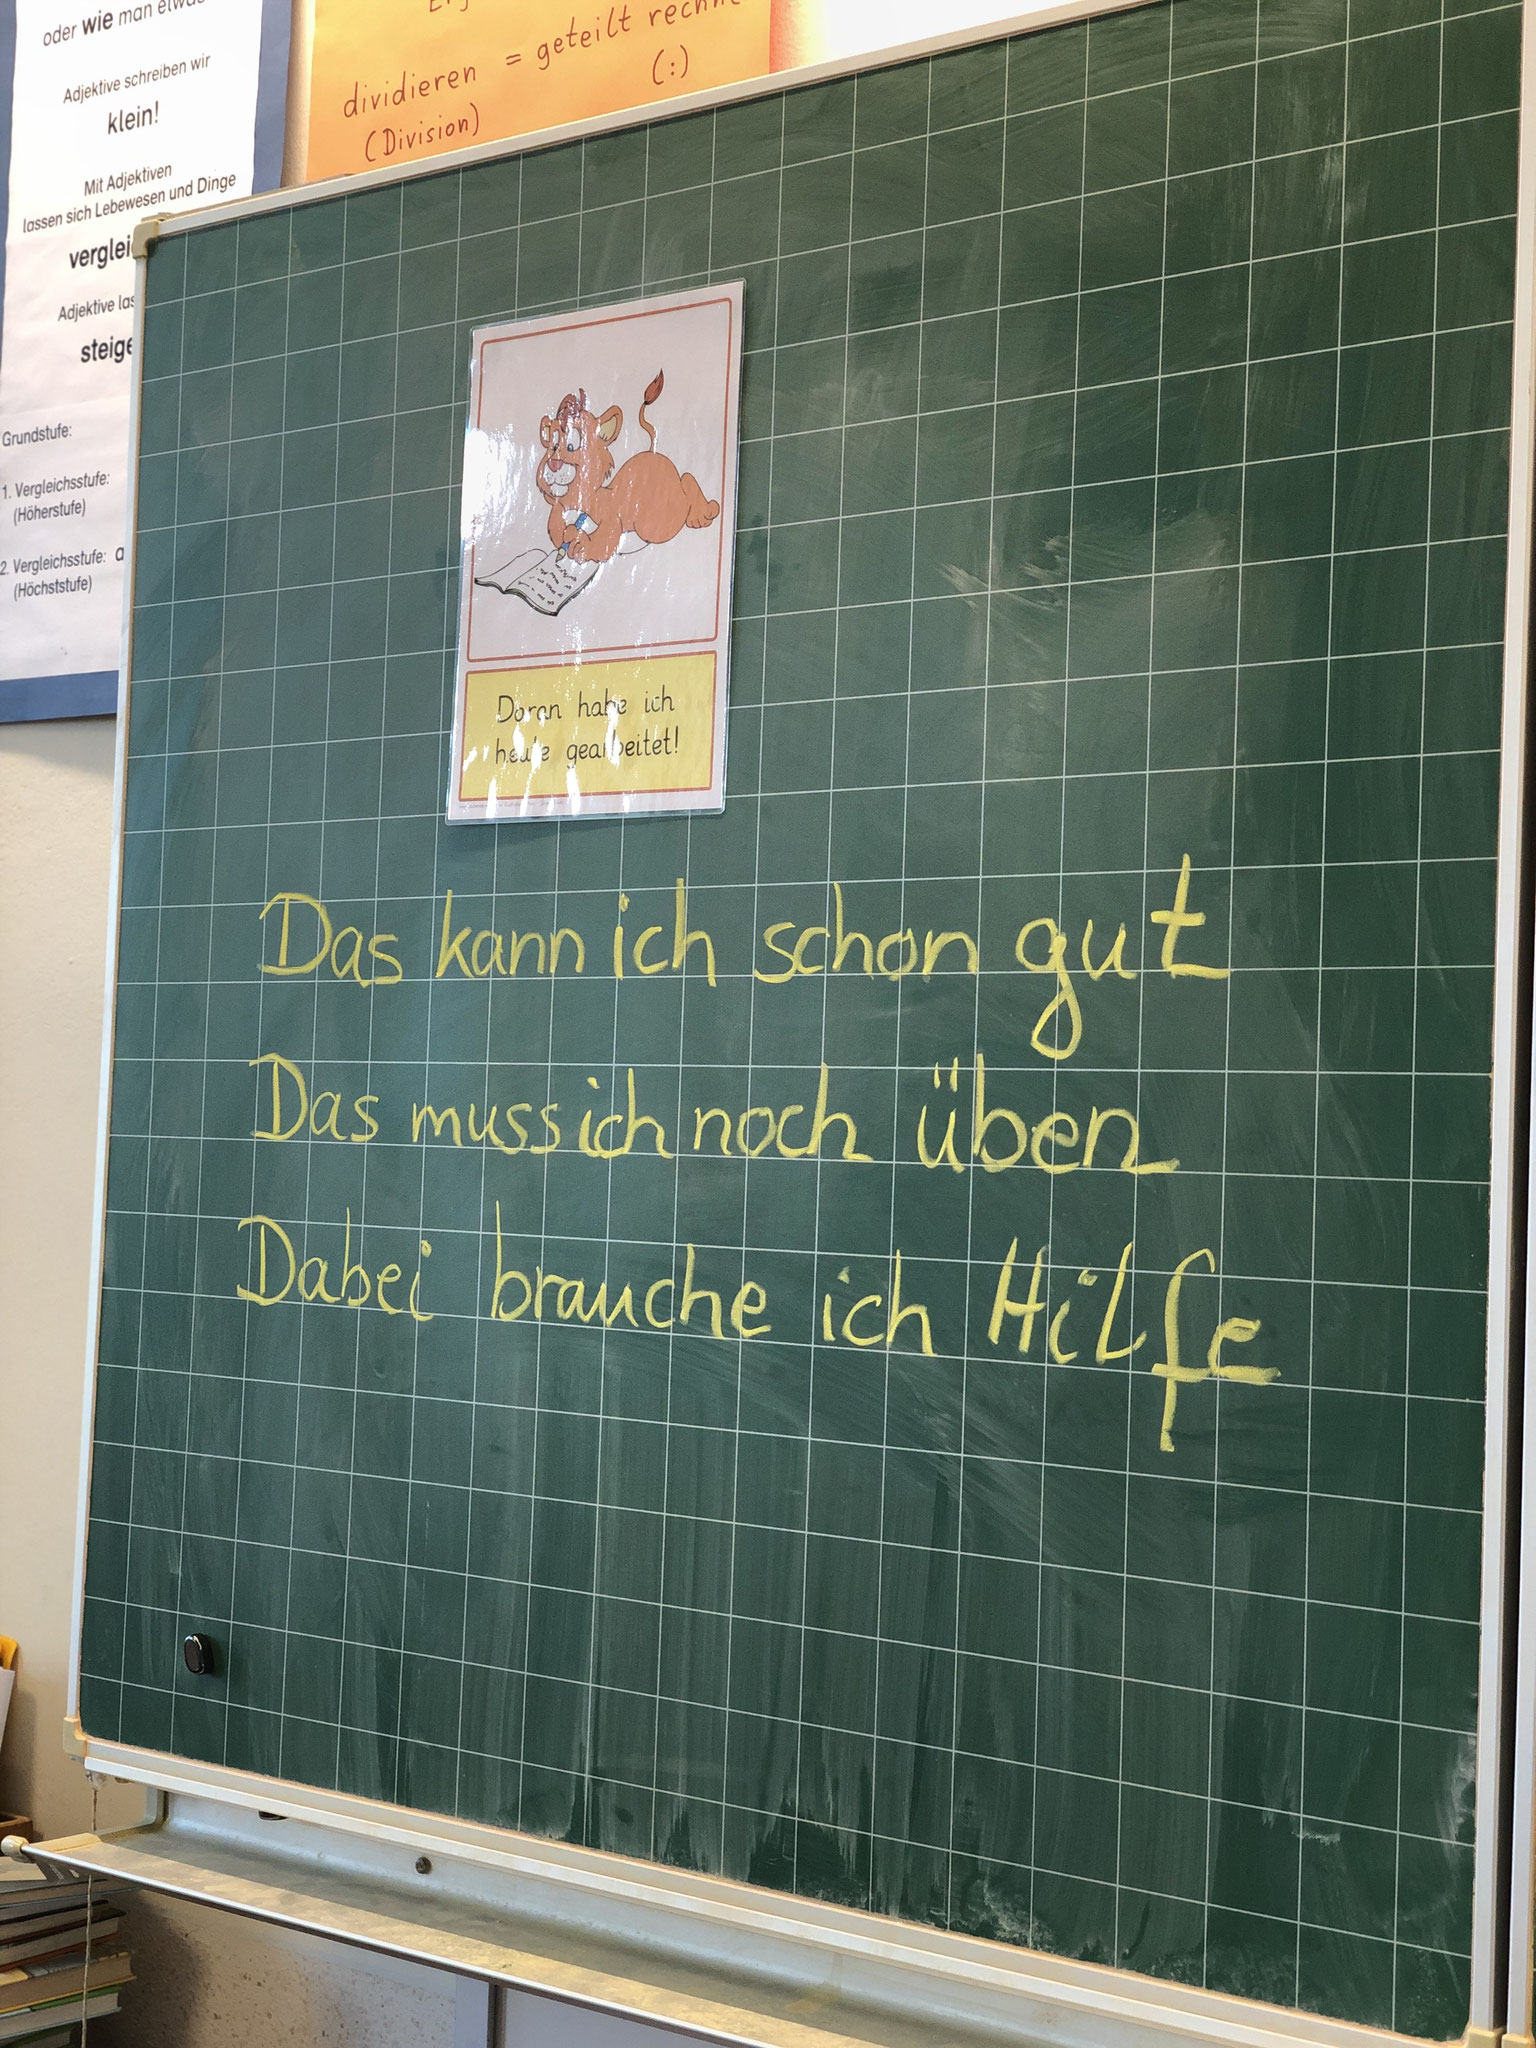 oder wie man etwas
Adjektive schreiben wir
klein!
Mit Adjektiven
lassen sich Lebewesen und Dinge
verglei
Adjektive las
steige
Grundstufe:
1. Vergleichsstufe:
(Höherstufe)
2. Vergleichsstufe: a
(Höchststufe)
dividieren = geteilt rechne
(Division) (:)
Daran habe ich
heute gearbeitet!
Das kann ich schon gut
Das muss ich noch üben
Dabei brauche ich Hilfe